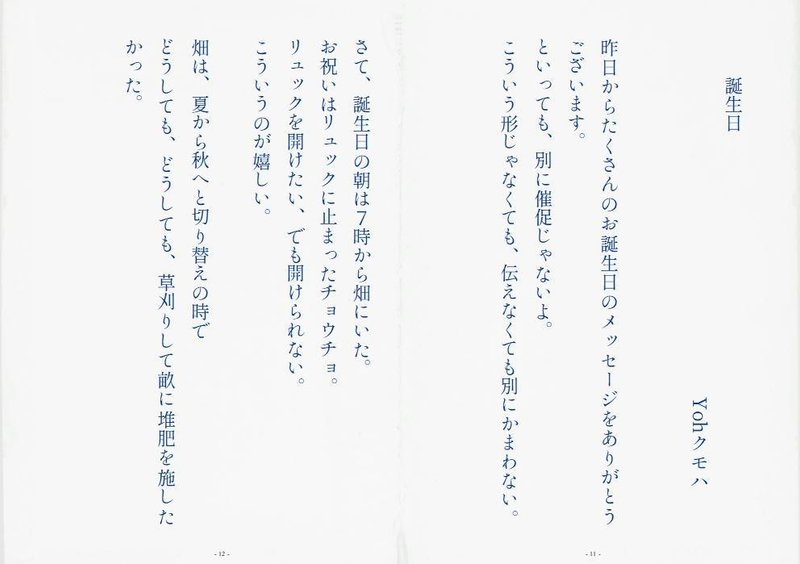 誕生日
Yohクモハ
昨日からたくさんのお誕生日のメッセージをありがとう
ございます。
といっても、別に催促じゃないよ。
こういう形じゃなくても、伝えなくても別にかまわない。
- 11 -
さて、誕生日の朝は7時から畑にいた。
お祝いはリュックに止まったチョウチョ。
リュックを開けたい、でも開けられない。
こういうのが嬉しい。
畑は、夏から秋へと切り替えの時で
どうしても、どうしても、草刈りして畝に堆肥を施した
かった。
- 12 -